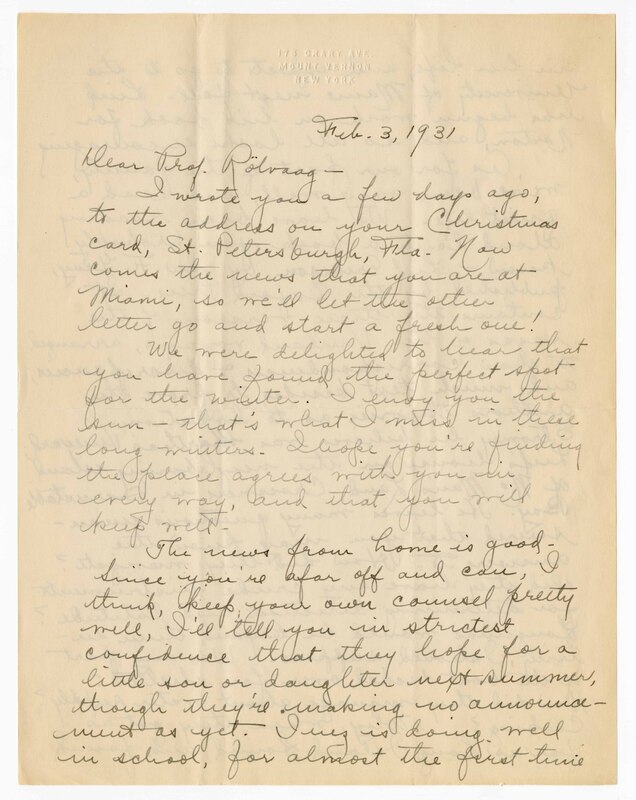 175 CRARY AVE.
MOUNT VERNON
NEW YORK
Feb. 3, 1931
Dear Prof. Rölvaag —
I wrote you a few days ago,
to the address on your Christmas
card, St. Petersburgh, Fla. Now
comes the news that you are at
Miami, so we'll let the other
letter go and start a fresh one!
We were delighted to hear that
you have found the perfect spot
for the winter. I envy you the
sun — that's what I miss in these
long winters. I hope you're finding
the place agrees with you in
every way, and that you will
keep well.
The news from home is good.
Since you're afar off and can, I
think, keep your own counsel pretty
well, I'll tell you in strictest
confidence that they hope for a
little son or daughter next summer,
though they're making no announce-
ment as yet. Inez is doing well
in school, for almost the first time